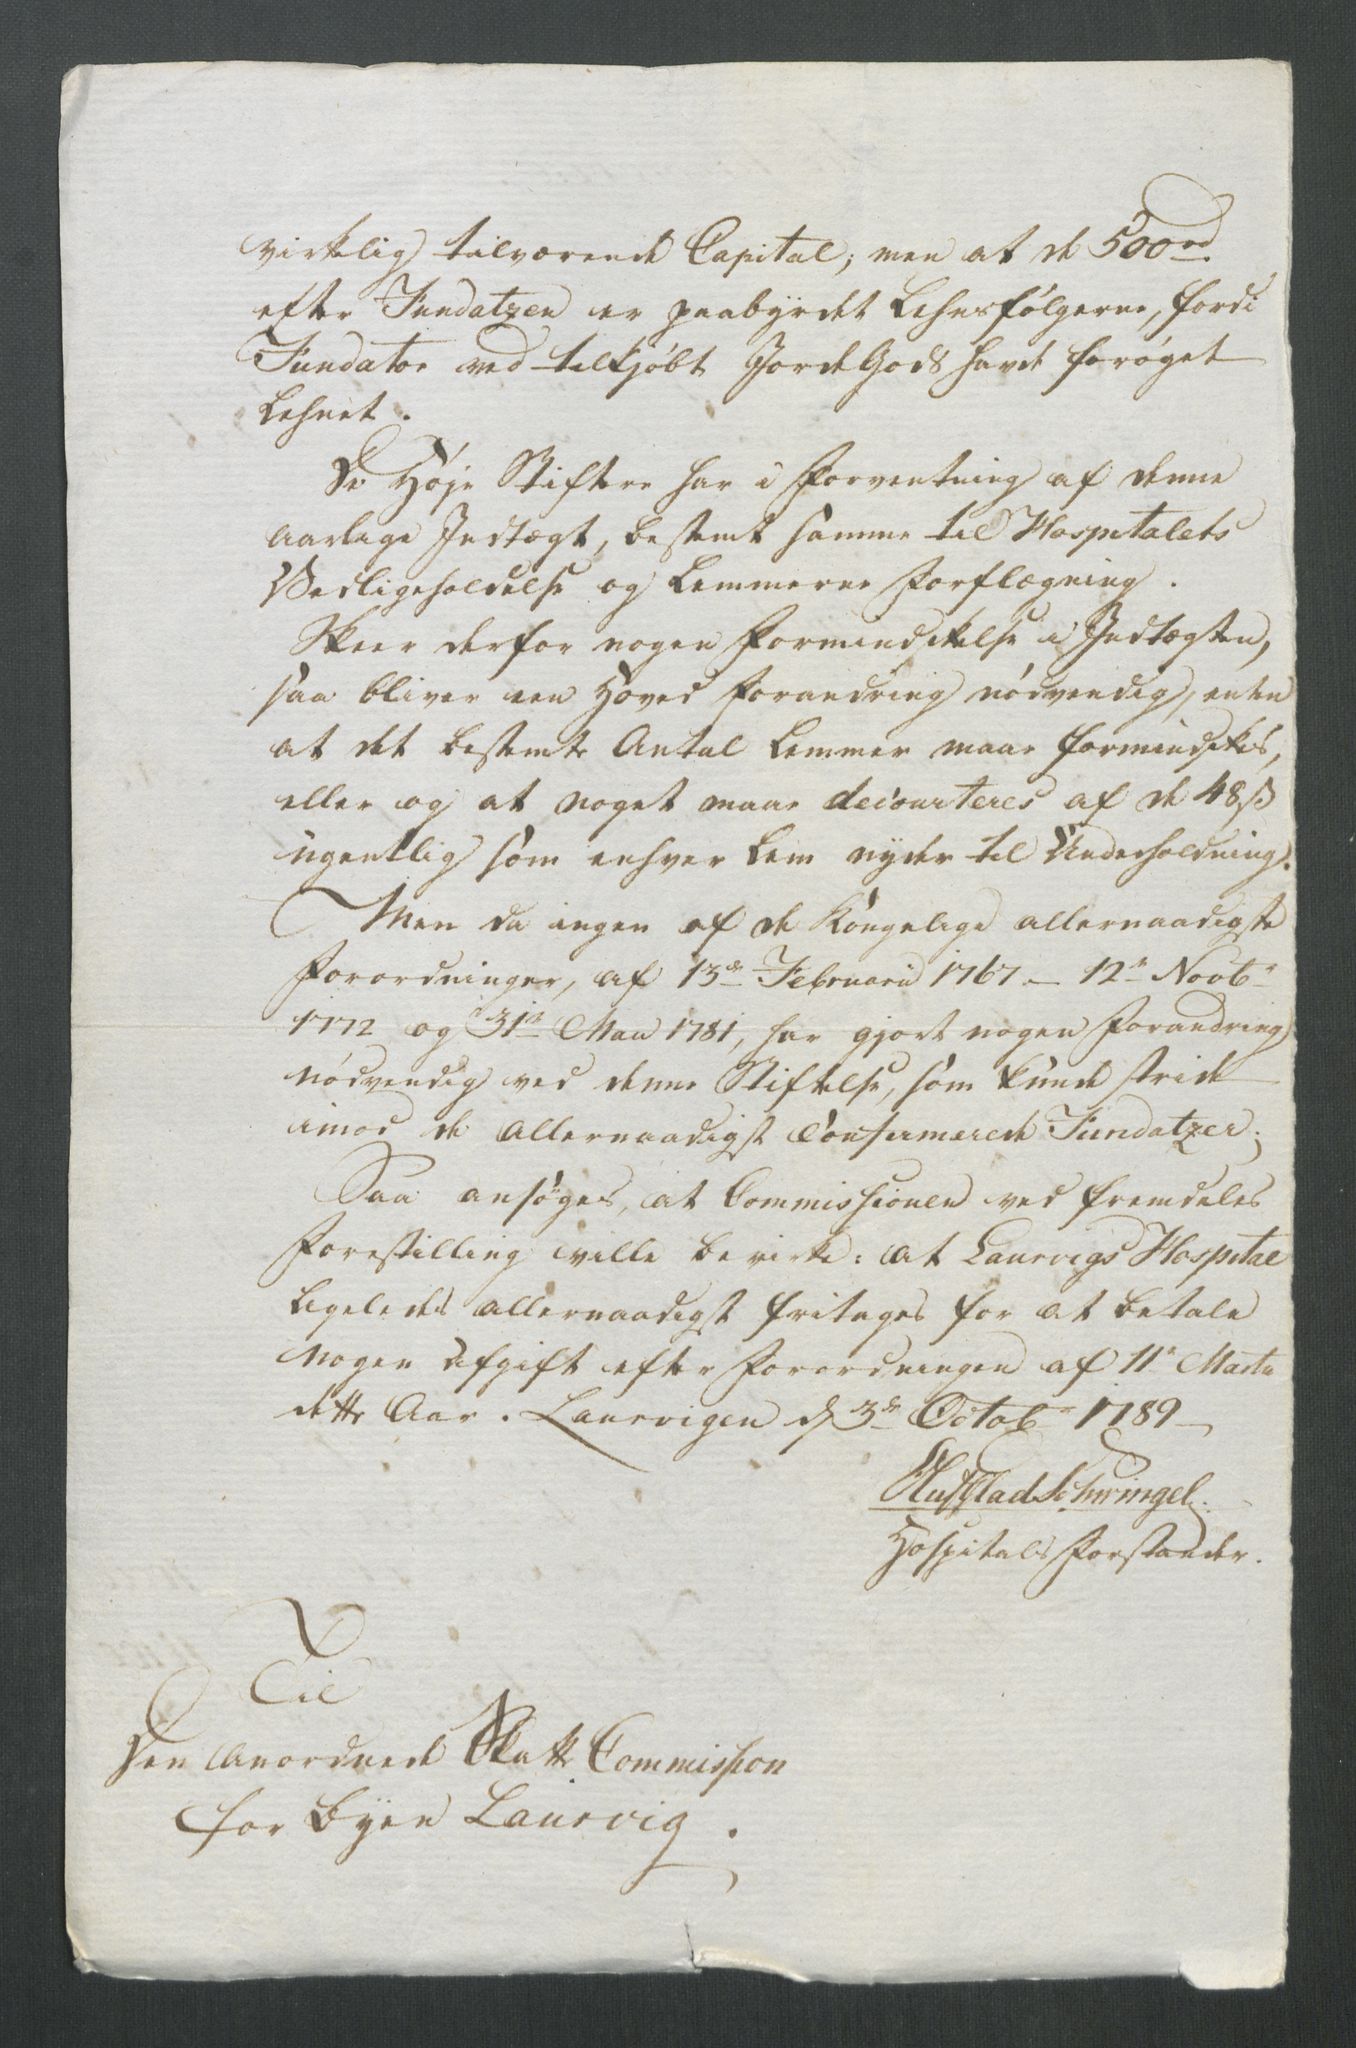 virkelig tilværende Capital; men at de 500 rd
efter Fundatzen er paabyrdet Lehnsfølgerne, fordi
Fundator ved tilkjøbt JordeGods havde forøget
Lehnet.
De Høje Stiftere har i Forventning af denne
aarlige Indtægt, bestemt samme til Hospitalets
Vedligeholdelse og Lemmerne Forflægning.
Skeer derfor nogen Formindskelse i Indtægten,
saa bliver een Hoved Forandring nødvendig, enten
at det bestemte Antal Lemmer maae formindskes,
eller og at noget maae decourteres af de 48 ß
ugentlig som enhver Lem nyder til Underholdning.
Men da ingen af de Kongelige allernaadigste
Forordninger, af 13de Februarii 1767 - 12te Novbr
1772 og 31te Maii 1781, har gjort nogen Forandring
nødvendig ved denne Stiftelse, som kunde stride
imod de allernaadigst Confirmerede Fundatzer;
Saa ansøges, at Commissionen ved fremdeles
Forestilling ville bevirke: at Laurvigs Hospital
ligeledes allernaadigst fritages for at betale
nogen Afgift efter Forordningen af 11te Martii
dette Aar. Laurvigen d 3de Octobr 1789
Schwingel.
Hospitals Forstander.
Til
Den Anordnede Skatte Commission
for Byen Laurvig.